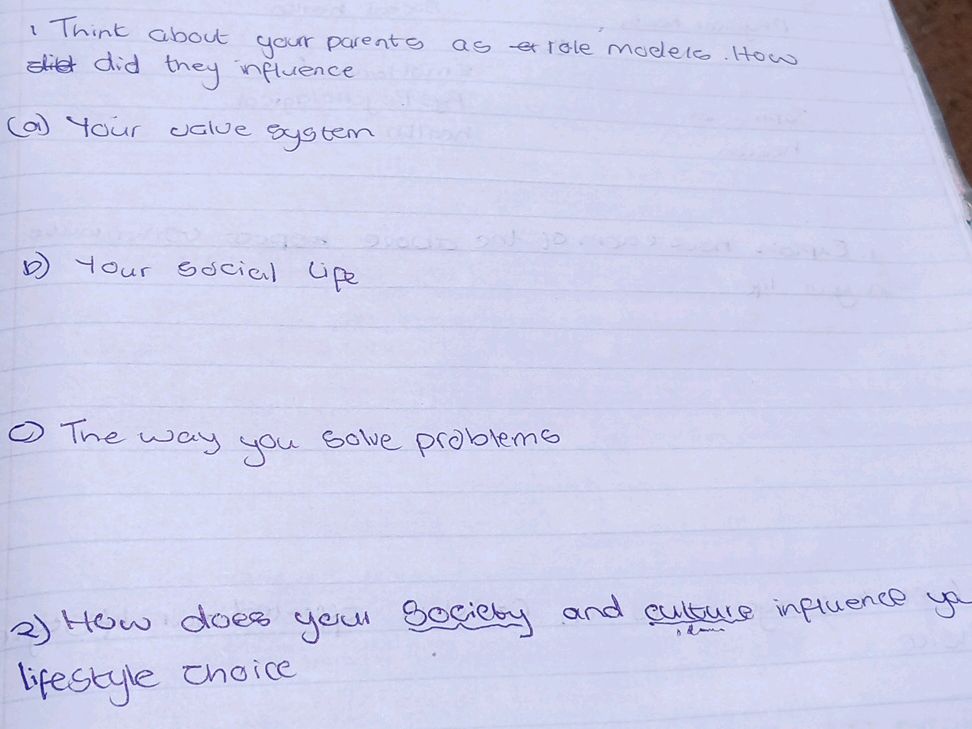 1 Think about your parents as role models. How
did they influence
(a) Your value system
b) Your social life
c) The way you solve problems
2) How does your society and culture influence yo
lifestyle choice